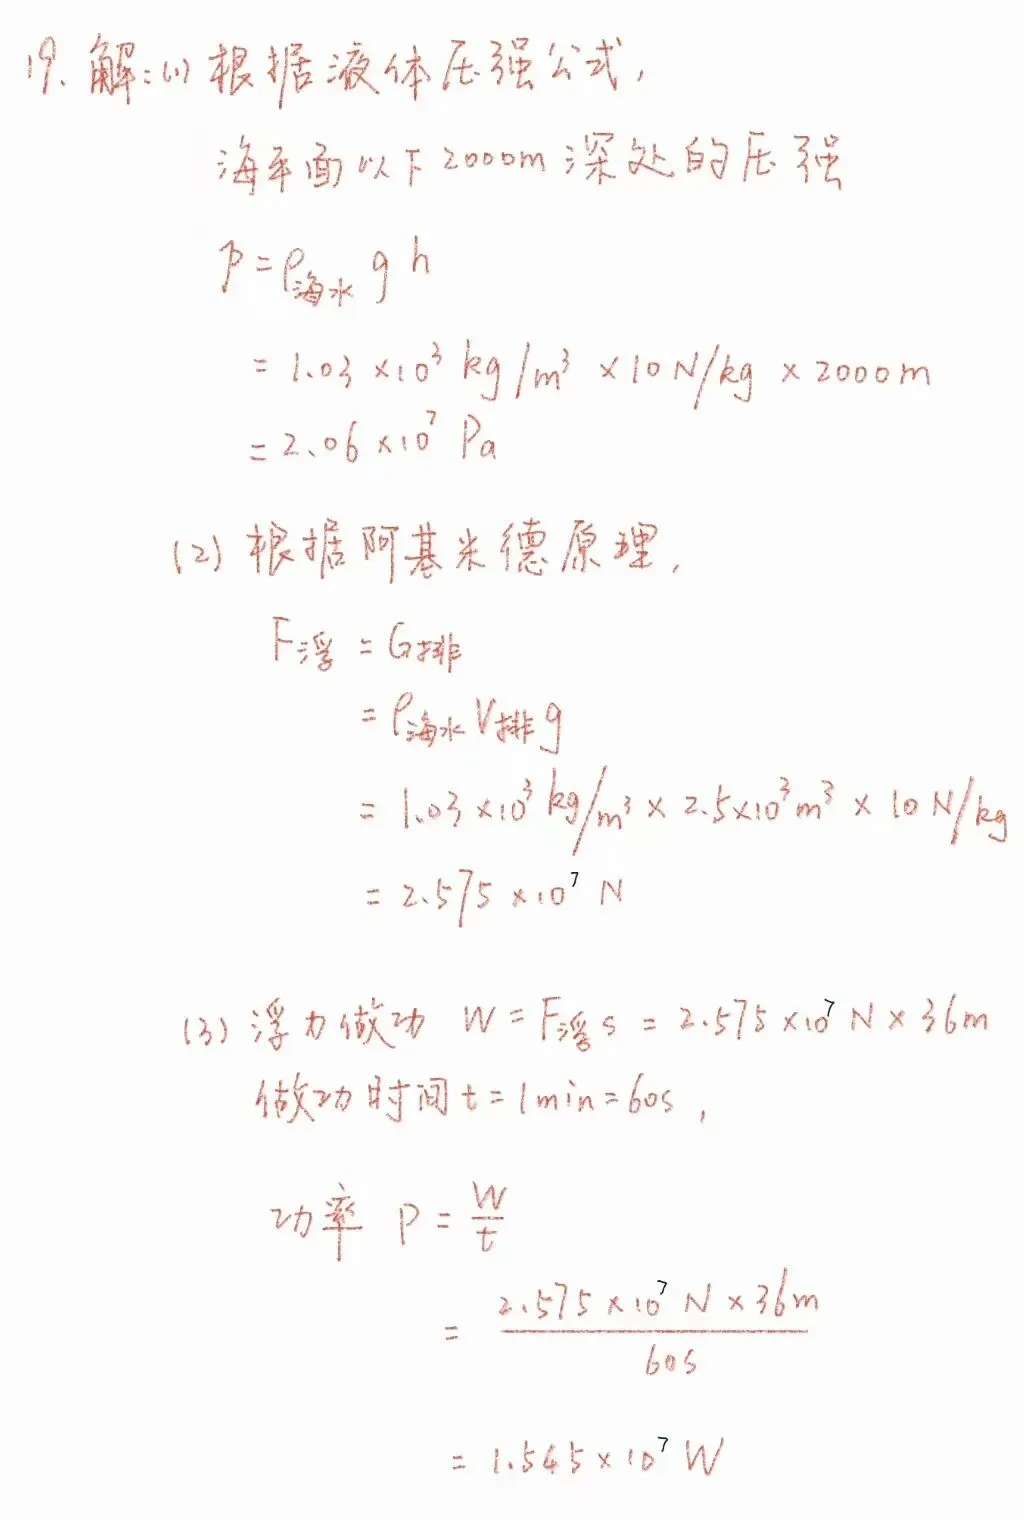 19. 解:(1) 根据液体压强公式,
海平面以下2000m深处的压强
p=ρ海水 g h
= 1.03 ×10³ kg/m³ ×10 N/kg × 2000m
= 2.06 ×10⁷ Pa
(2) 根据阿基米德原理,
F浮 = G排
= ρ海水 V排 g
= 1.03 ×10³ kg/m³ × 2.5×10³ m³ × 10 N/kg
= 2.575 ×10⁷ N
(3) 浮力做功 W = F浮 s = 2.575 ×10⁷ N × 36m
做功时间 t = 1min = 60s,
功率 P = W/t
= 2.575 ×10⁷ N × 36m / 60s
= 1.545 ×10⁷ W